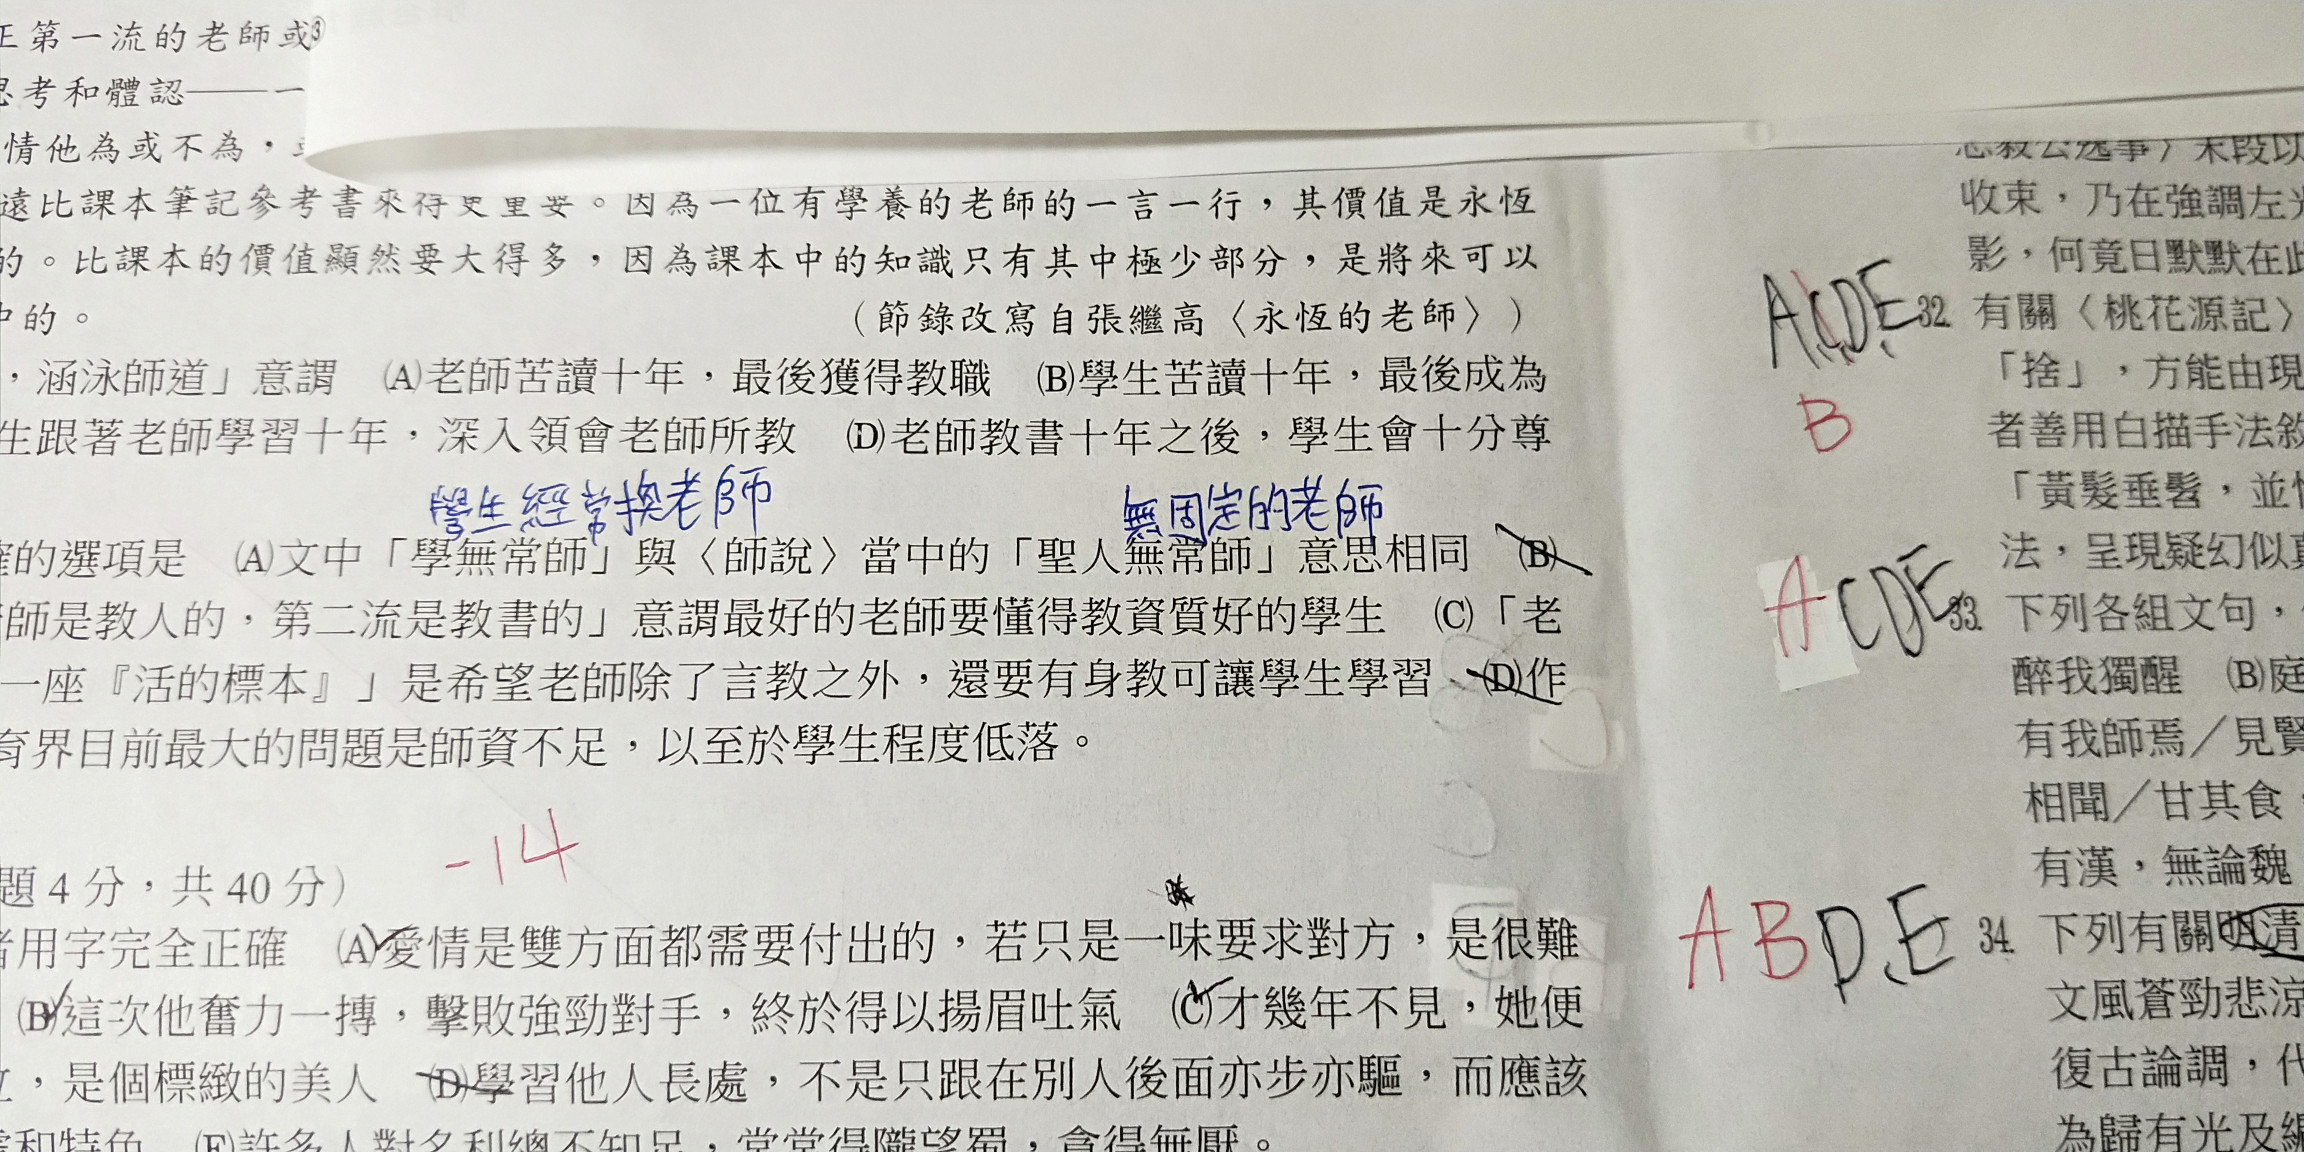 第一流的老師或③
思考和體認——一
情他為或不為，
遠比課本筆記參考書來得更重要。因為一位有學養的老師的一言一行，其價值是永恆
的。比課本的價值顯然要大得多，因為課本中的知識只有其中極少部分，是將來可以
中的。
（節錄改寫自張繼高〈永恆的老師〉）
，涵泳師道」意謂 (A)老師苦讀十年，最後獲得教職 (B)學生苦讀十年，最後成為
生跟著老師學習十年，深入領會老師所教 (D)老師教書十年之後，學生會十分尊
學生經常換老師 無固定的老師
的選項是 (A)文中「學無常師」與〈師說〉當中的「聖人無常師」意思相同 (B)
師是教人的，第二流是教書的」意謂最好的老師要懂得教資質好的學生 (C)「老
一座『活的標本』」是希望老師除了言教之外，還要有身教可讓學生學習 (D)作
育界目前最大的問題是師資不足，以至於學生程度低落。
-14
題 4 分，共 40 分）
用字完全正確 (A)愛情是雙方面都需要付出的，若只是一味要求對方，是很難
(B)這次他奮力一摶，擊敗強勁對手，終於得以揚眉吐氣 (C)才幾年不見，她便
立，是個標緻的美人 (D)學習他人長處，不是只跟在別人後面亦步亦驅，而應該
和特色 (E)許多人對名利總不知足，常常得隴望蜀，貪得無厭。
忠毅公逸事〉末段以
收束，乃在強調左光
影，何竟日默默在此
ACDE
32. 有關〈桃花源記〉
「捨」，方能由現
B
者善用白描手法敘
「黃髮垂髫，並怡
法，呈現疑幻似真
ACDE
33. 下列各組文句，
醉我獨醒 (B)庭
有我師焉／見賢
相聞／甘其食，
有漢，無論魏
ABDE
34. 下列有關明清
文風蒼勁悲涼
復古論調，代
為歸有光及編